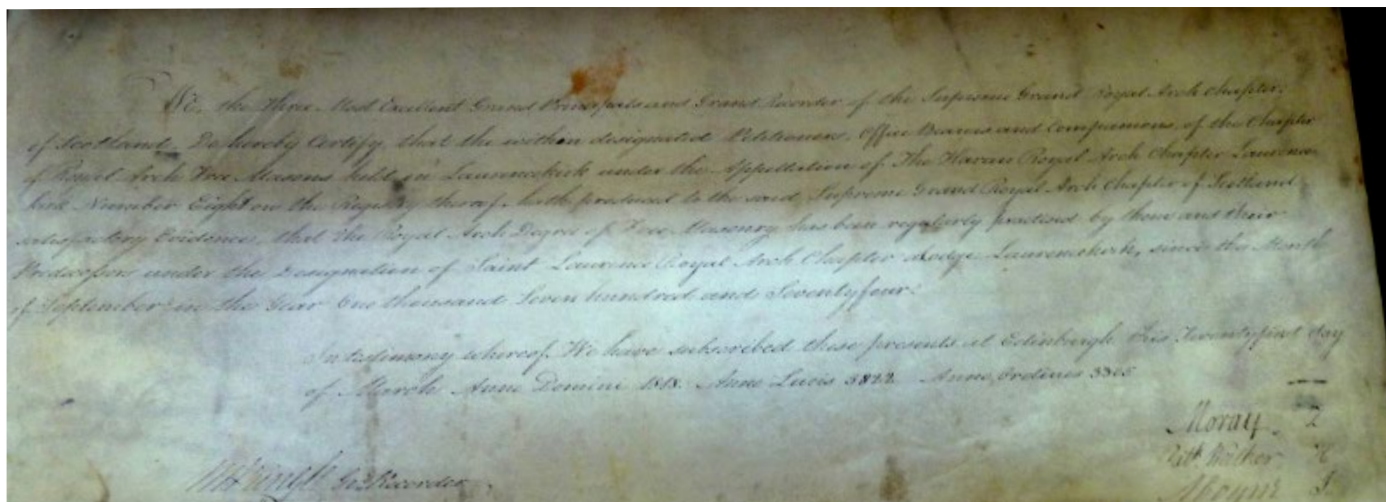 We, the Three Most Excellent Grand Principals and Grand Recorder of the Supreme Grand Royal Arch Chapter
of Scotland, Do hereby Certify, that the within designated Petitioners, Office Bearers and Companions, of the Chapter
of Royal Arch Free Masons held in Laurencekirk under the Appellation of The Haran Royal Arch Chapter Laurence-
kirk Number Eight on the Registry thereof hath produced to the said Supreme Grand Royal Arch Chapter of Scotland
satisfactory Evidence, that the Royal Arch Degree of Free Masonry has been regularly practised by those and their
Predecessors under the Designation of Saint Laurence Royal Arch Chapter Lodge Laurencekirk, since the Month
of September in the Year One thousand Seven hundred and Seventyfour.
In testimony whereof We have subscribed these presents at Edinburgh this Twentyfirst day
of March Anno Domini 1818. Anno Lucis 5822 Anno Ordines
Moray. Z
Walker H
Gd Recorder J